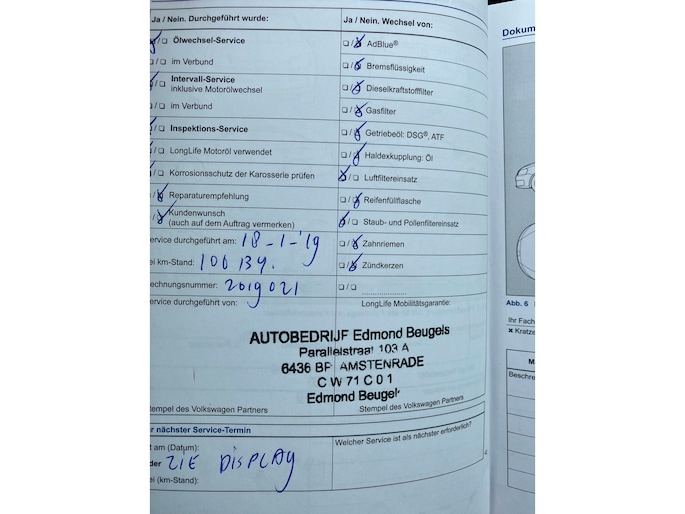 Ja / Nein. Durchgeführt wurde:
Ja / Nein. Wechsel von:
Ölwechsel-Service
im Verbund
Intervall-Service
inklusive Motorölwechsel
im Verbund
Inspektions-Service
LongLife Motoröl verwendet
Korrosionsschutz der Karosserie prüfen
Reparaturempfehlung
Kundenwunsch
(auch auf dem Auftrag vermerken)
ervice durchgeführt am: 18-1-'19
ei km-Stand: 106134.
echnungsnummer: 2019021
ervice durchgeführt von:
AdBlue®
Bremsflüssigkeit
Dieselkraftstofffilter
Gasfilter
Getriebeöl: DSG®, ATF
Haldexkupplung: Öl
Luftfiltereinsatz
Reifenfüllflasche
Staub- und Pollenfiltereinsatz
Zahnriemen
Zündkerzen
LongLife Mobilitätsgarantie:
AUTOBEDRIJF Edmond Beugels
Parallelstraat 103 A
6436 BP AMSTENRADE
CW71C01
Edmond Beugels
Stempel des Volkswagen Partners
Stempel des Volkswagen Partners
r nächster Service-Termin
t am (Datum):
der ZIE DISPLAY
ei (km-Stand):
Welcher Service ist als nächster erforderlich?
Dokum
Abb. 6
Ihr Fach
× Kratze
M
Beschre